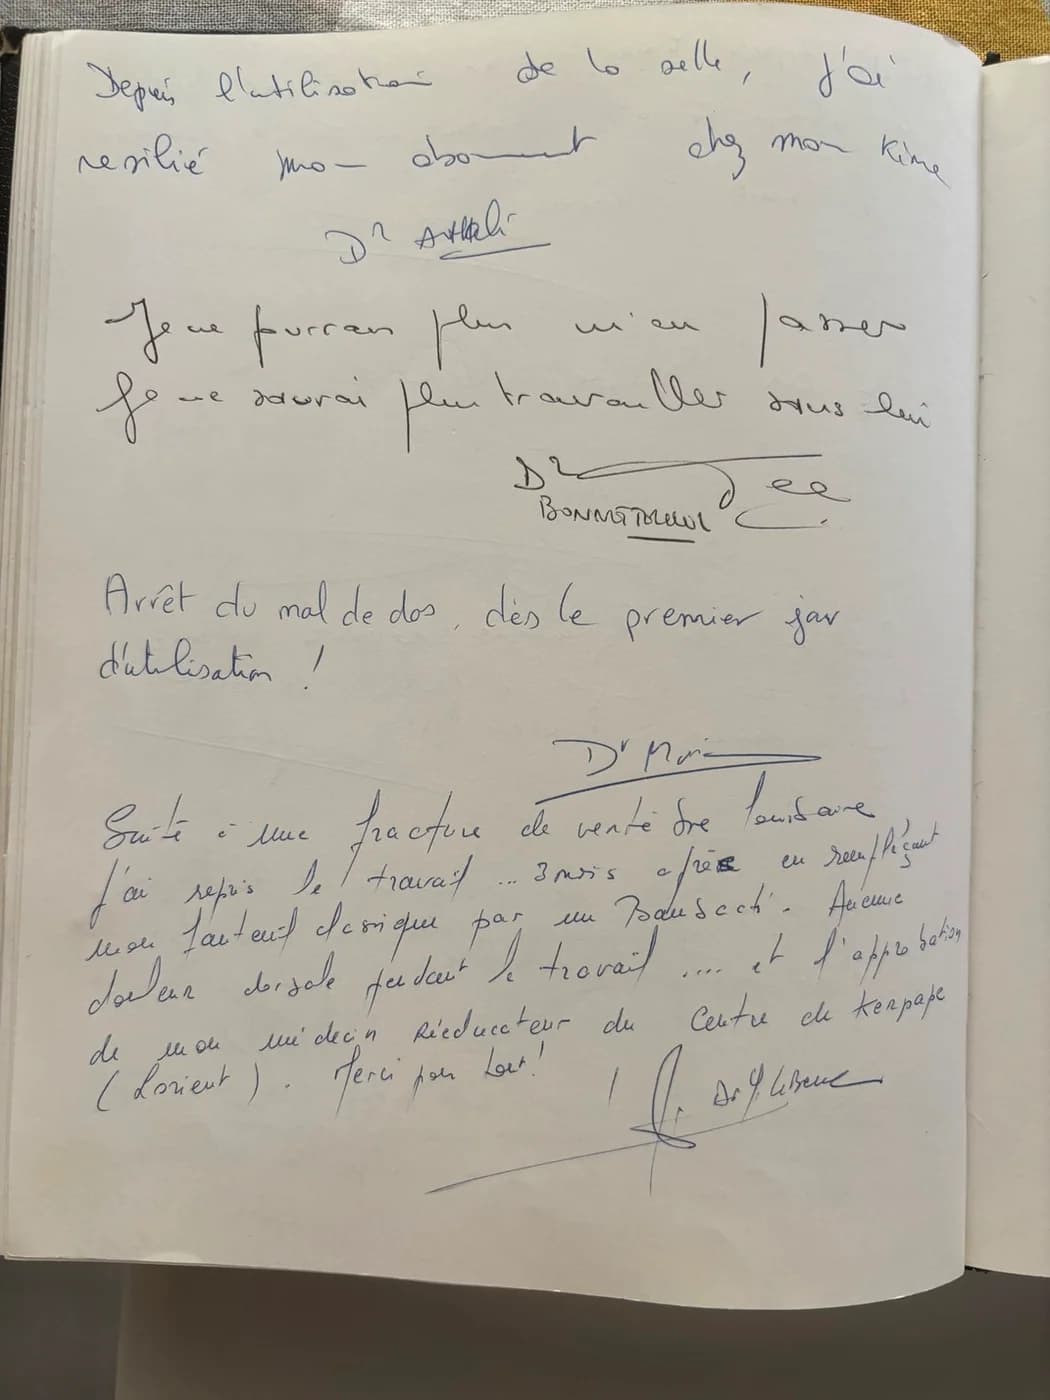 Depuis l'utilisation de la selle, j'ai
resilié mon abonnement chez mon Kine
Dr Attali
Je ne pourrais plus m'en passer
Je ne saurai plus travailler sans lui
Dr
Arrêt du mal de dos, dès le premier jour
d'utilisation !
Dr
Suite à une fracture de vertèbre lombaire,
j'ai repris le travail ... 3 mois après en remplaçant
mon fauteuil classique par un Bambach. Aucune
douleur dorsale pendant le travail .... et l'approbation
de mon médecin Rééducateur du Centre de Kerpape
(Lorient). Merci pour tout !
Dr Y. Le